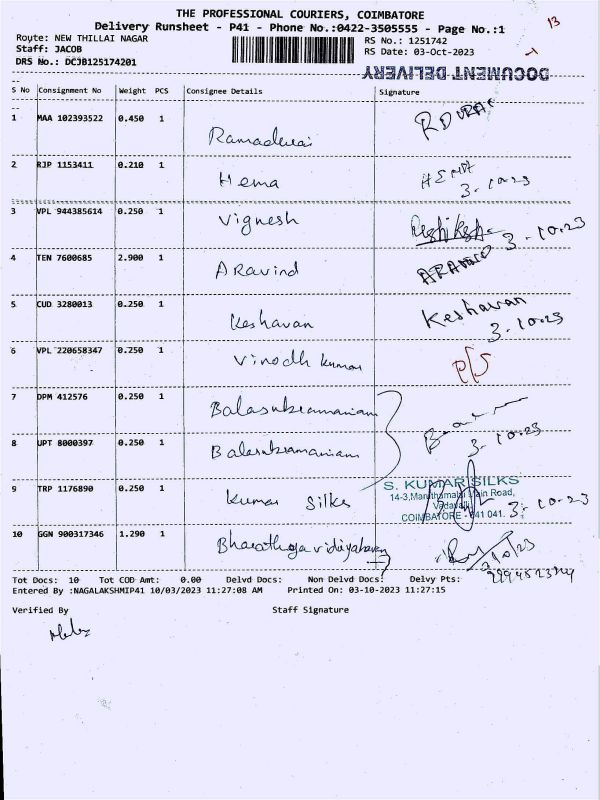 THE PROFESSIONAL COURIERS, COIMBATORE
13
Delivery Runsheet - P41 - Phone No.:0422-3505555 - Page No.:1
Route: NEW THILLAI NAGAR
RS No.: 1251742
Staff: JACOB
RS Date: 03-Oct-2023
DRS No.: DCJB125174201
DOCUMENT DELIVERY
S No Consignment No Weight PCS Consignee Details Signature
1 MAA 102393522 0.450 1
2 RJP 1153411 0.210 1 Hema HEMA
3. 10-23
3 VPL 944385614 0.250 1 Vignesh
3. 10.23
4 TEN 7600685 2.900 1 ARavind ARAVIND
5 CUD 3280013 0.250 1 Keshavan Keshavan
3. 10.23
6 VPL 220658347 0.250 1 Vinodh kumar
7 DPM 412576 0.250 1 Balasubramaniam
3. 10.23
8 UPT 8000397 0.250 1 Balasubramaniam
9 TRP 1176890 0.250 1 Kumar Silks
S. KUMAR SILKS
14-3, Maruthamalai Main Road,
Vadavalli,
COIMBATORE - 641 041.
3. 10-23
10 GGN 900317346 1.290 1
3/10/23
Tot Docs: 10 Tot COD Amt: 0.00 Delvd Docs: Non Delvd Docs: Delvy Pts:
Entered By :NAGALAKSHMIP41 10/03/2023 11:27:08 AM Printed On: 03-10-2023 11:27:15
Verified By Staff Signature